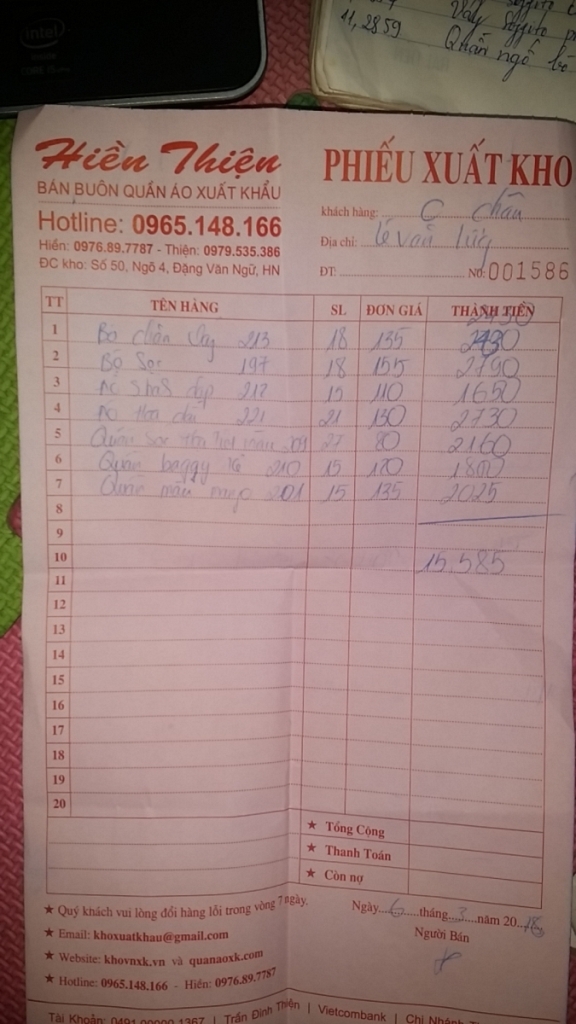 intel
11,2859
Váy
Quần ngố bò
Hiền Thiện
BÁN BUÔN QUẦN ÁO XUẤT KHẨU
Hotline: 0965.148.166
Hiền: 0976.89.7787 - Thiện: 0979.535.386
ĐC kho: Số 50, Ngõ 4, Đặng Văn Ngữ, HN
PHIẾU XUẤT KHO
khách hàng: C Châu
Địa chỉ: Lê văn
ĐT: NO: 001586
TT TÊN HÀNG SL ĐƠN GIÁ THÀNH TIỀN
2430
1 Bộ chân váy 213 18 135 2430
2 Bộ sọc 197 18 155 2790
3 Áo 212 15 110 1650
4 Áo 221 21 130 2730
5 Quần 27 80 2160
6 Quần baggy kẻ 210 15 120 1800
7 Quần 201 15 135 2025
8
9
10 15,585
11
12
13
14
15
16
17
18
19
20
★ Tổng Cộng
★ Thanh Toán
★ Còn nợ
★ Quý khách vui lòng đổi hàng lỗi trong vòng 7 ngày.
★ Email: khoxuatkhau@gmail.com
★ Website: khovnxk.vn và quanaoxk.com
★ Hotline: 0965.148.166 - Hiền: 0976.89.7787
Ngày 6 tháng 3 năm 20
Người Bán
Tài Khoản: | Trần Đình Thiện | Vietcombank | Chi Nhánh